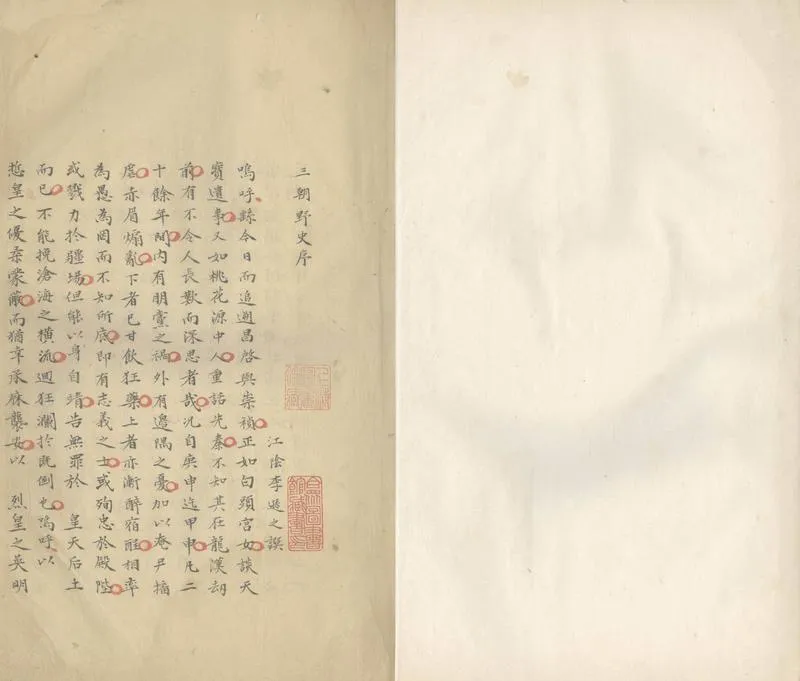 三朝野史序
江陰李遜之譔
嗚呼繇今日而追遡昌啓與崇禎正如白頭宮女談天
寶遺事又如桃花源中人重話先秦不知其在龍漢劫
前有不令人長歎而深思者哉况自庚申迄甲申凡二
十餘年間内有朋黨之禍外有邉隅之憂加以奄尹搆
虐赤眉煽亂下者已甘飲狂藥上者亦漸醉宿酲相率
為愚為罔而不知所底即有志義之士或殉忠於殿陛
或戮力於疆場但能以身自靖告無罪於 皇天后土
而已不能挽滄海之橫流迴狂瀾於既倒也嗚呼以
悊皇之優柔蒙蔽而猶幸承庥襲安以 烈皇之英明